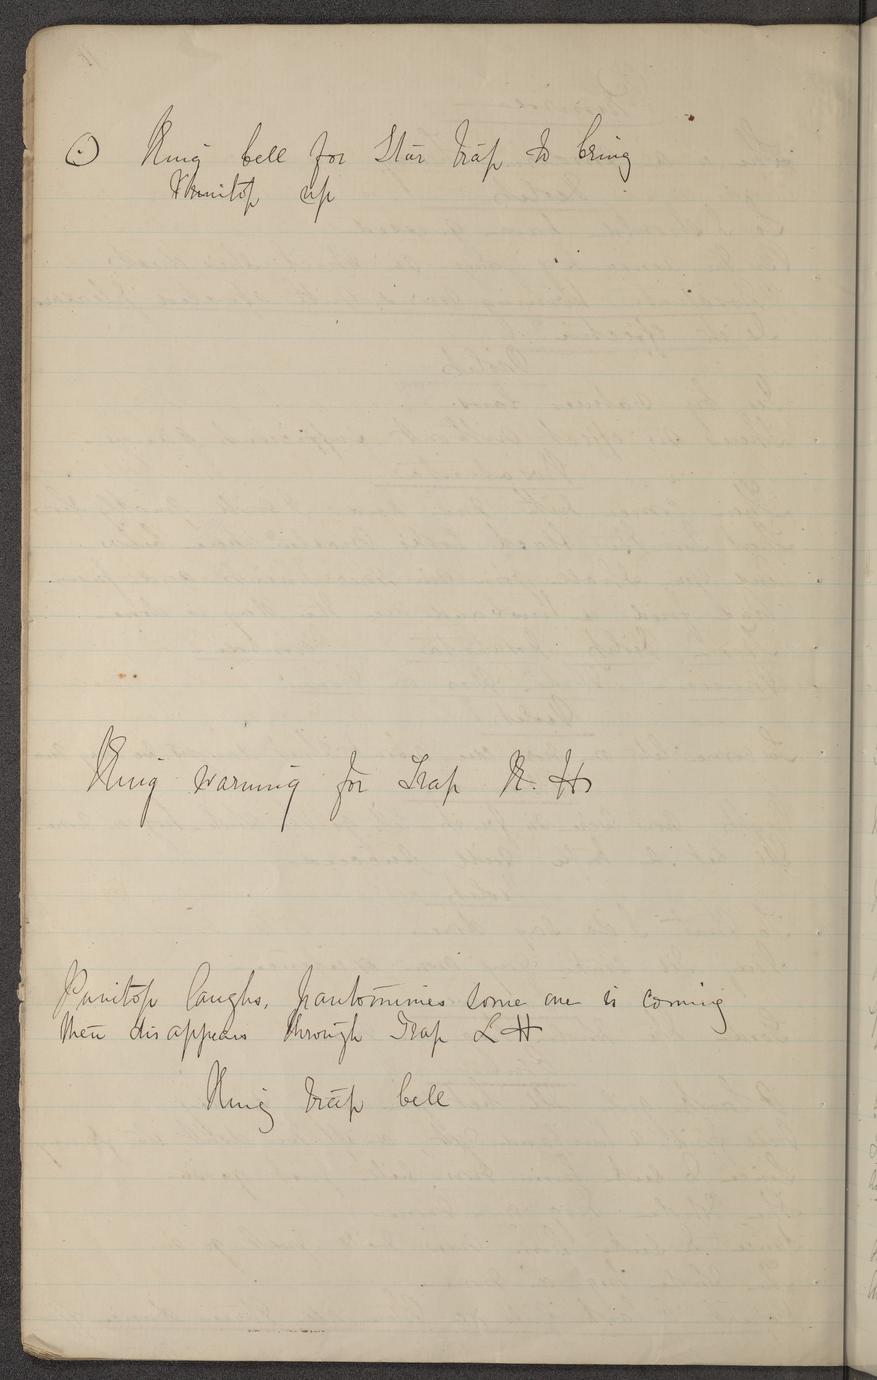 Ring bell for Star trap to bring
Punitop up
Ring warning for Trap R. H
Punitop laughs, pantomimes some one is coming
then disappears through Trap L H
Ring trap bell